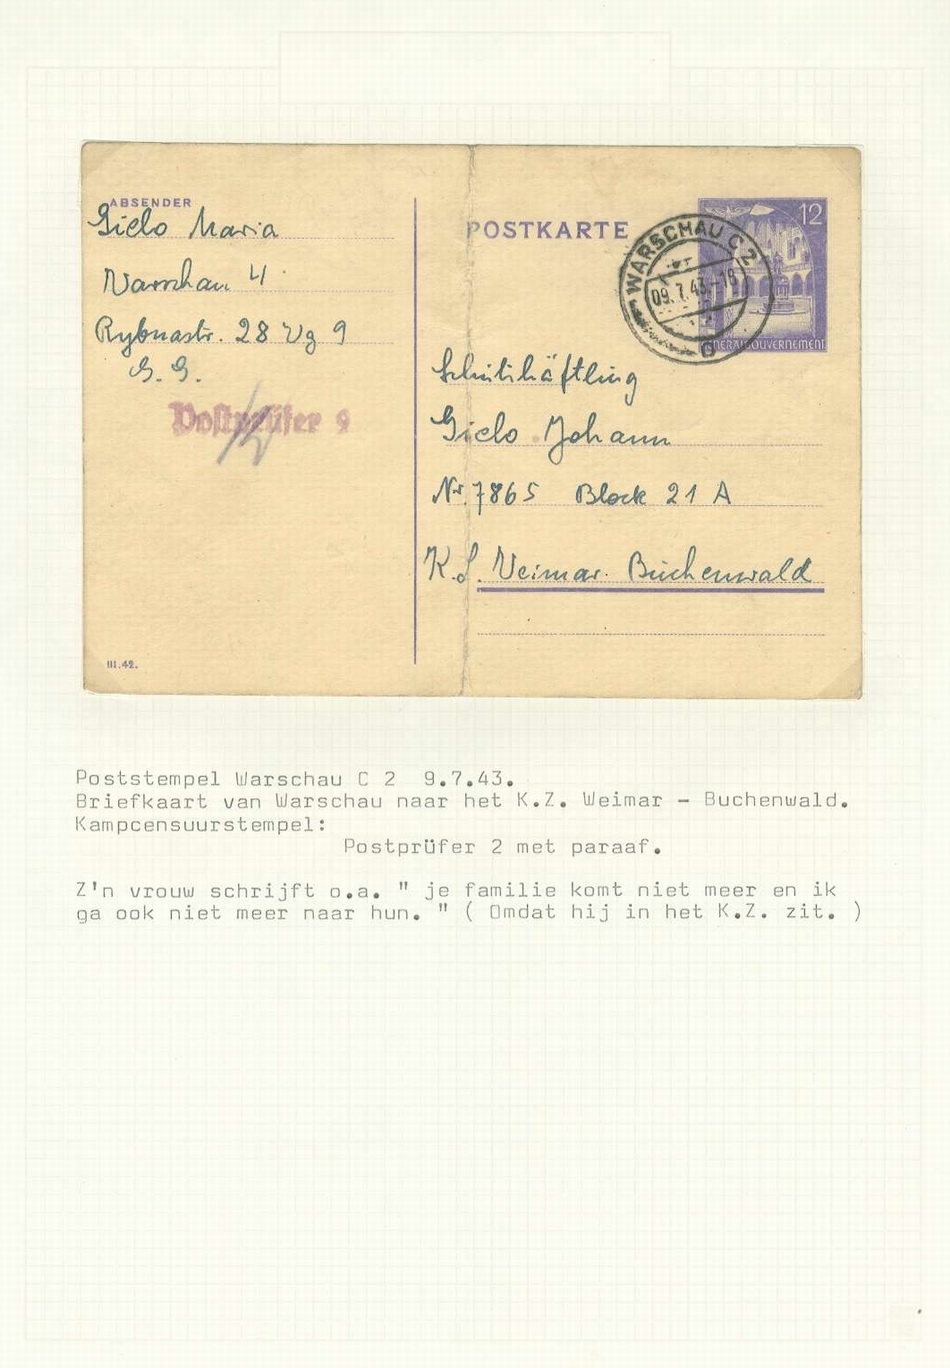 ABSENDER
Gielo Maria
Warschau 4
Rybnastr. 28 Wg 9
G. G.
Postprüfer 9
III.42.
POSTKARTE
WARSCHAU C 2
09.7.43.-18
12
GENERALGOUVERNEMENT
Schutzhäftling
Gielo Johann
Nr. 7865 Block 21 A
K.L. Weimar. Buchenwald
Poststempel Warschau C 2 9.7.43.
Briefkaart van Warschau naar het K.Z. Weimar – Buchenwald.
Kampcensuurstempel:
Postprüfer 2 met paraaf.
Z'n vrouw schrijft o.a. " je familie komt niet meer en ik
ga ook niet meer naar hun. " ( Omdat hij in het K.Z. zit. )